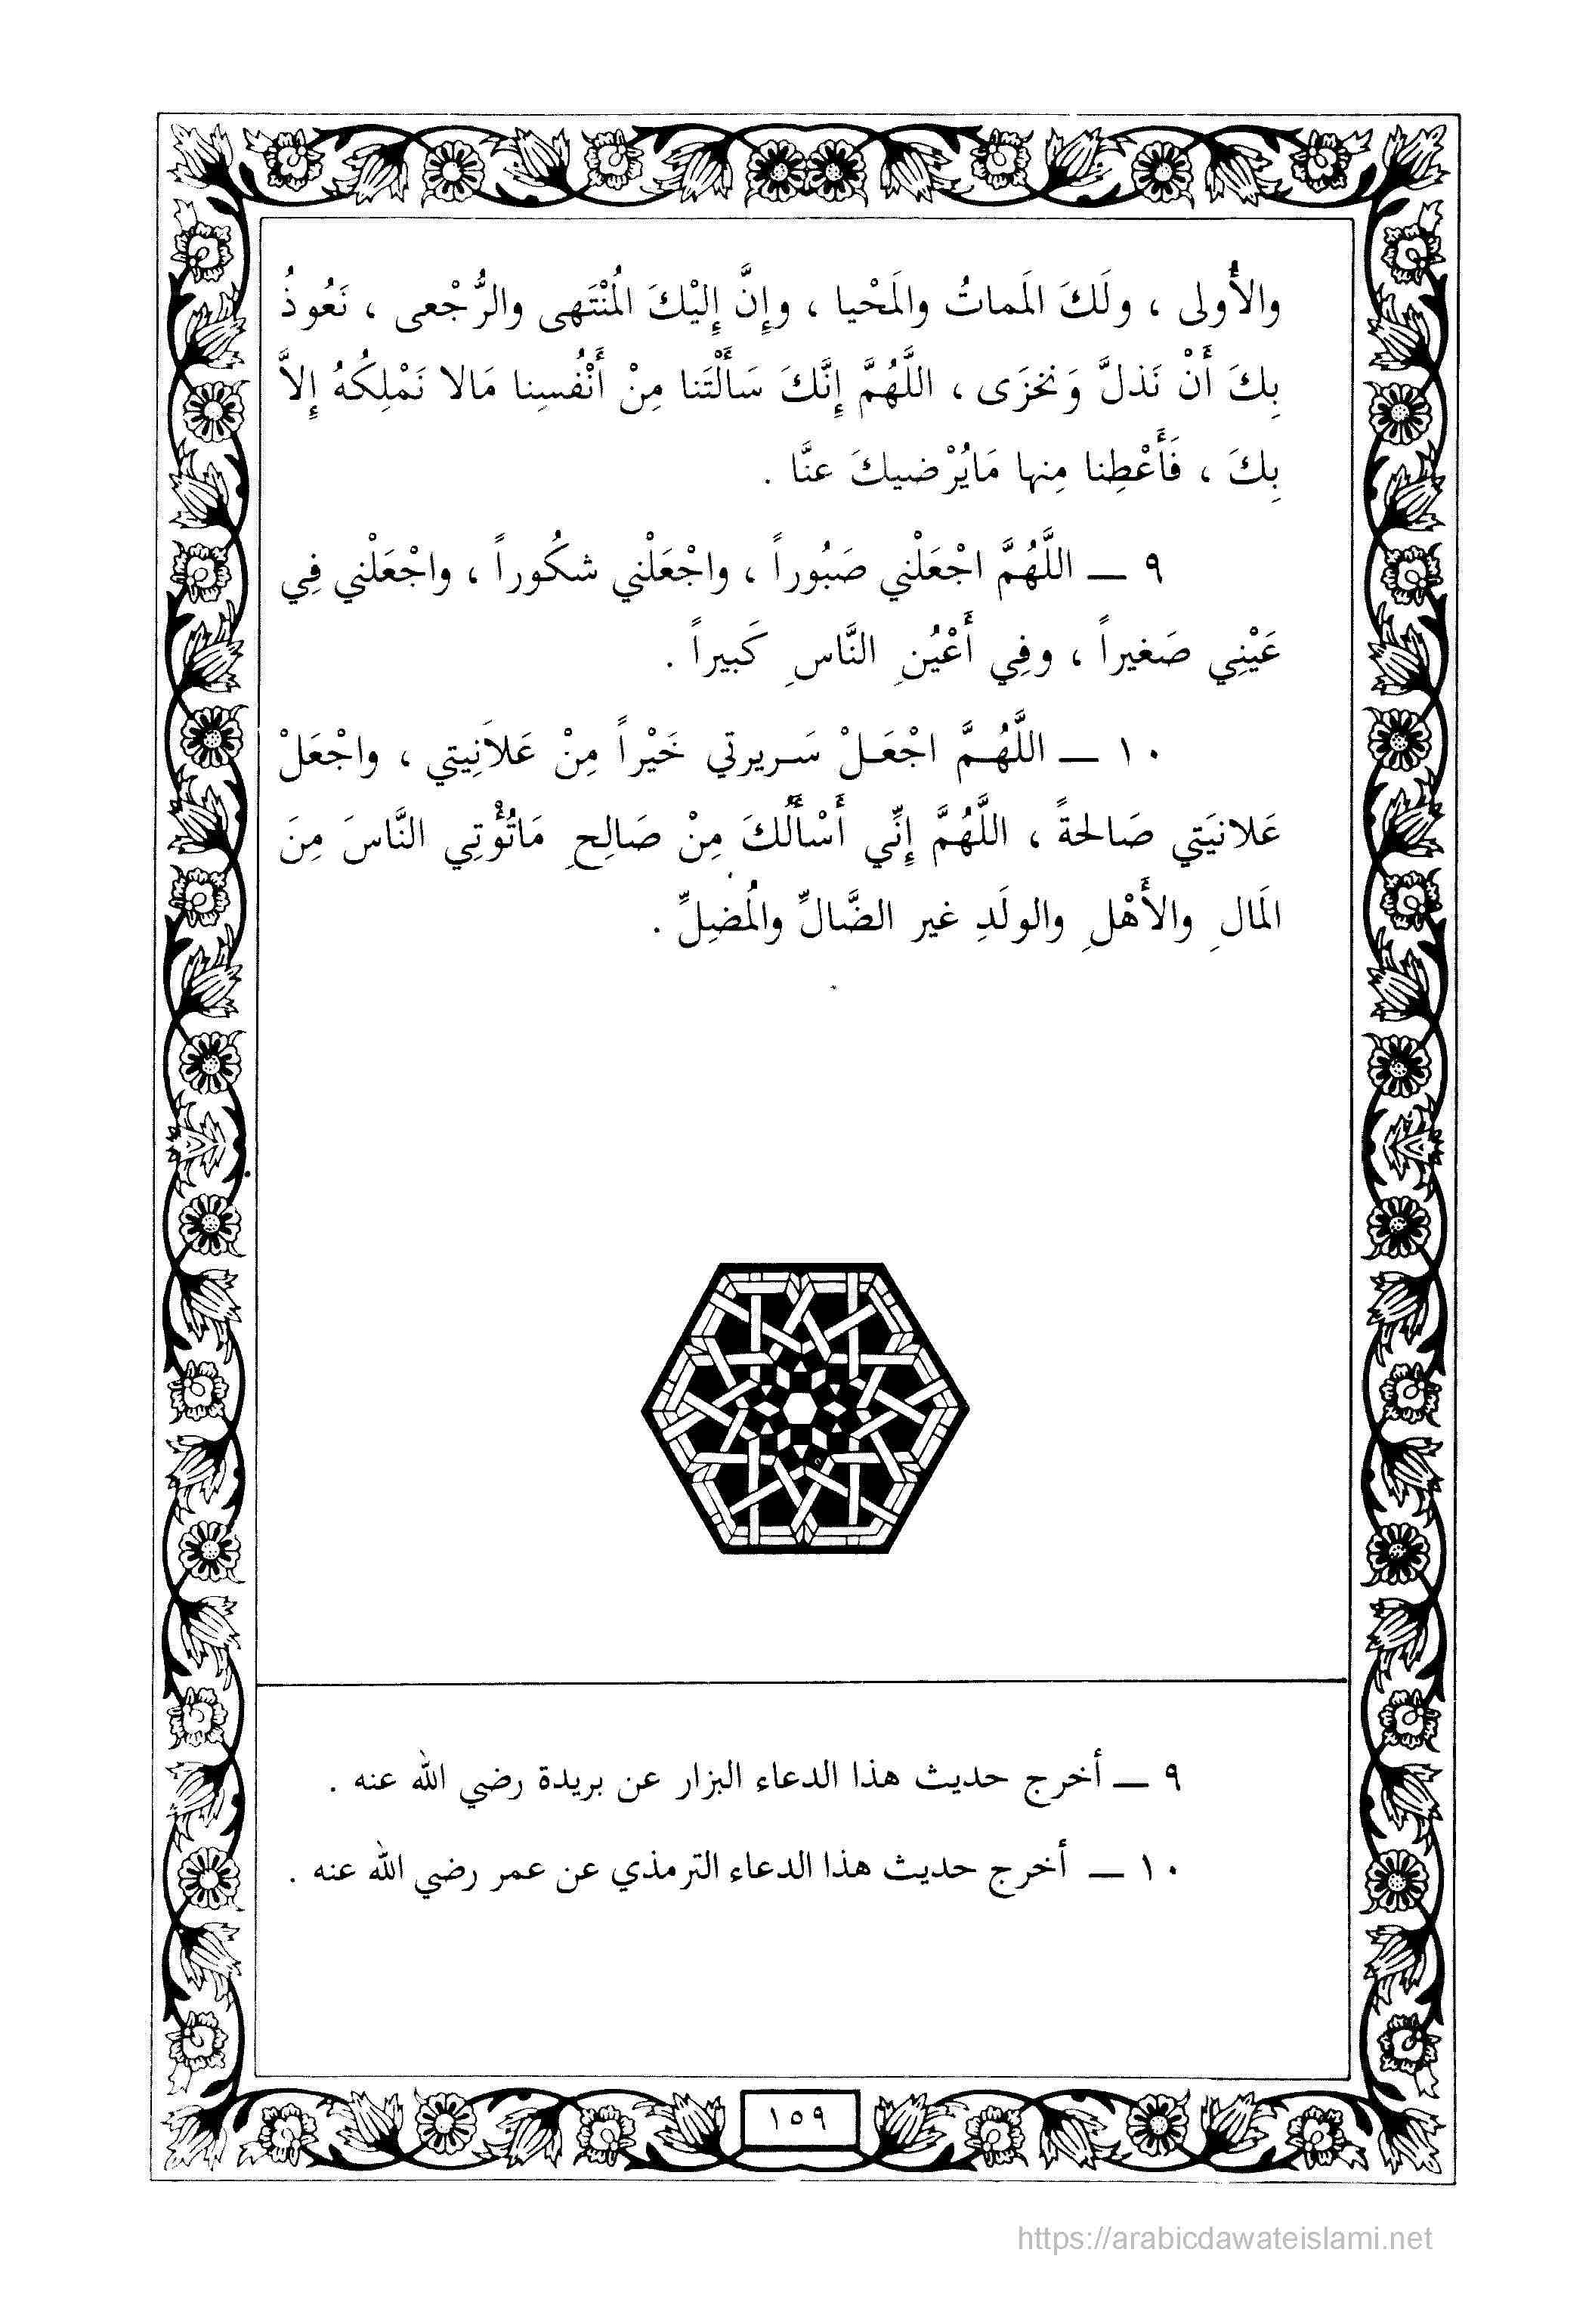 والأُولى ، ولَكَ الَمماتُ والَمَحْيا ، وإِنَّ إِليْكَ الُمنْتَهى والرُّجْعى ، نَعُوذُ
بِكَ أَنْ نَذلَّ وَنخزَى ، اللَّهُمَّ إِنَّكَ سَأَلْتَنا مِنْ أَنْفُسِنا مَالا نَمْلِكُهُ إِلاَّ
بِكَ ، فَأَعْطِنا مِنها مَايُرْضيكَ عنَّا .
٩ ـــ اللَّهُمَّ اجْعَلْني صَبُوراً ، واجْعَلْني شكُوراً ، واجْعَلْني فِي
عَيْنِي صَغيراً ، وفِي أَعْيُنِ النَّاسِ كَبيراً .
١٠ ـــ اللَّهُـمَّ اجْعَـلْ سَـريرتي خَيْراً مِنْ عَلاَنِيتي ، واجْعَلْ
عَلانيَتي صَالحةً ، اللَّهُمَّ إِنِّي أَسْأَلُكَ مِنْ صَالِحِ مَاتُؤْتِي النَّاسَ مِنَ
الَمالِ والأَهْلِ والولَدِ غير الضَّالِّ والُمضِلِّ .
٩ ـــ أخرج حديث هذا الدعاء البزار عن بريدة رضي الله عنه .
١٠ ـــ أخرج حديث هذا الدعاء الترمذي عن عمر رضي الله عنه .
١٥٩
https://arabicdawateislami.net